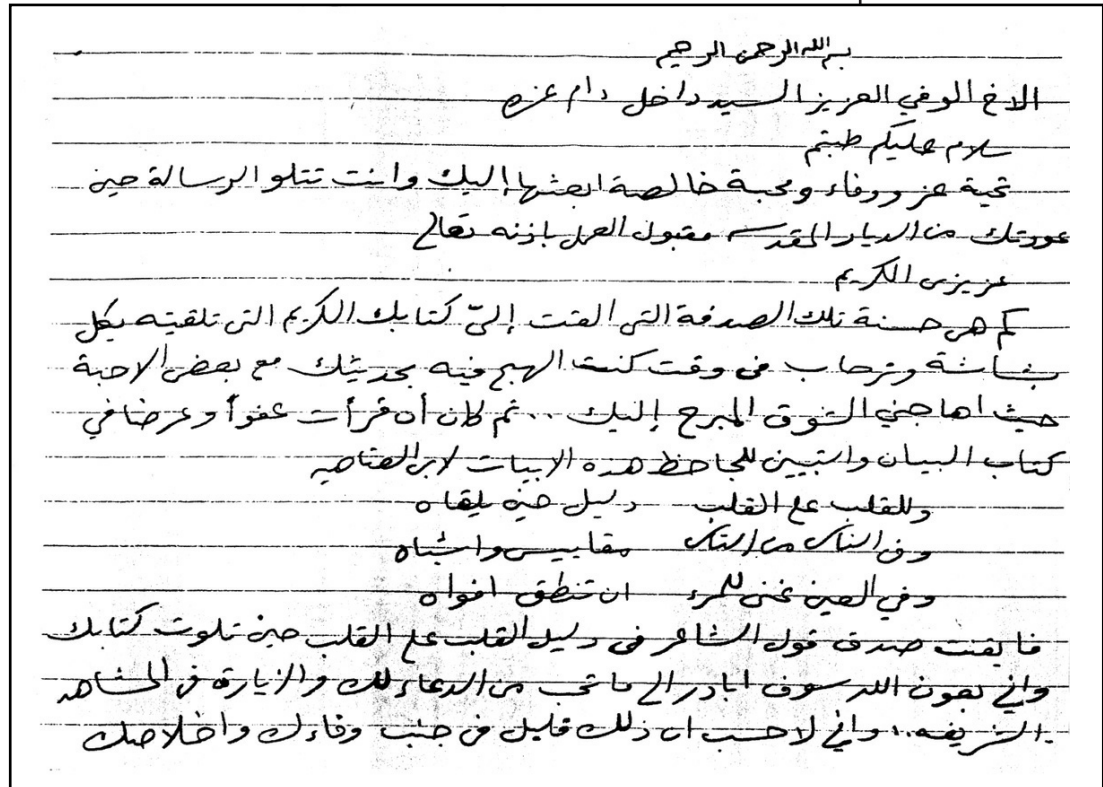 بسم الله الرحمن الرحيم
الاخ الوفي العزيز السيد داخل دام عزه
سلام عليكم طبتم
تحية عز ووفاء ومحبة خالصة ابعثها إليك وانت تتلو الرسالة حين
عودتك من الديار المقدسه مقبول العمل باذنه تعالى
عزيزي الكريم
كم هي حسنة تلك الصدفة التي القت إليّ كتابك الكريم التي تلقيته بكل
بشاشة وترحاب في وقت كنت الهج فيه بحديثك مع بعض الاحبة
حيث اهاجني الشوق المبرح إليك .. ثم كان أن قرأت عفواً وعرضا في
كتاب البيان والتبيين للجاحظ هذه الابيات لابي العتاهيه
وللقلب على القلب دليل حين يلقاه
وفي الناس من الناس مقاييس واشباه
وفي العين غنى للمرء ان تنطق افواه
فايقنت صدق قول الشاعر في دليل القلب على القلب حين تلوت كتابك
واني بعون الله سوف ابادر الى ما تحب من الدعاء لك والزيارة في المشاهد
الشريفه .. واني لاحسب ان ذلك قليل في جنب وفاءك واخلاصك